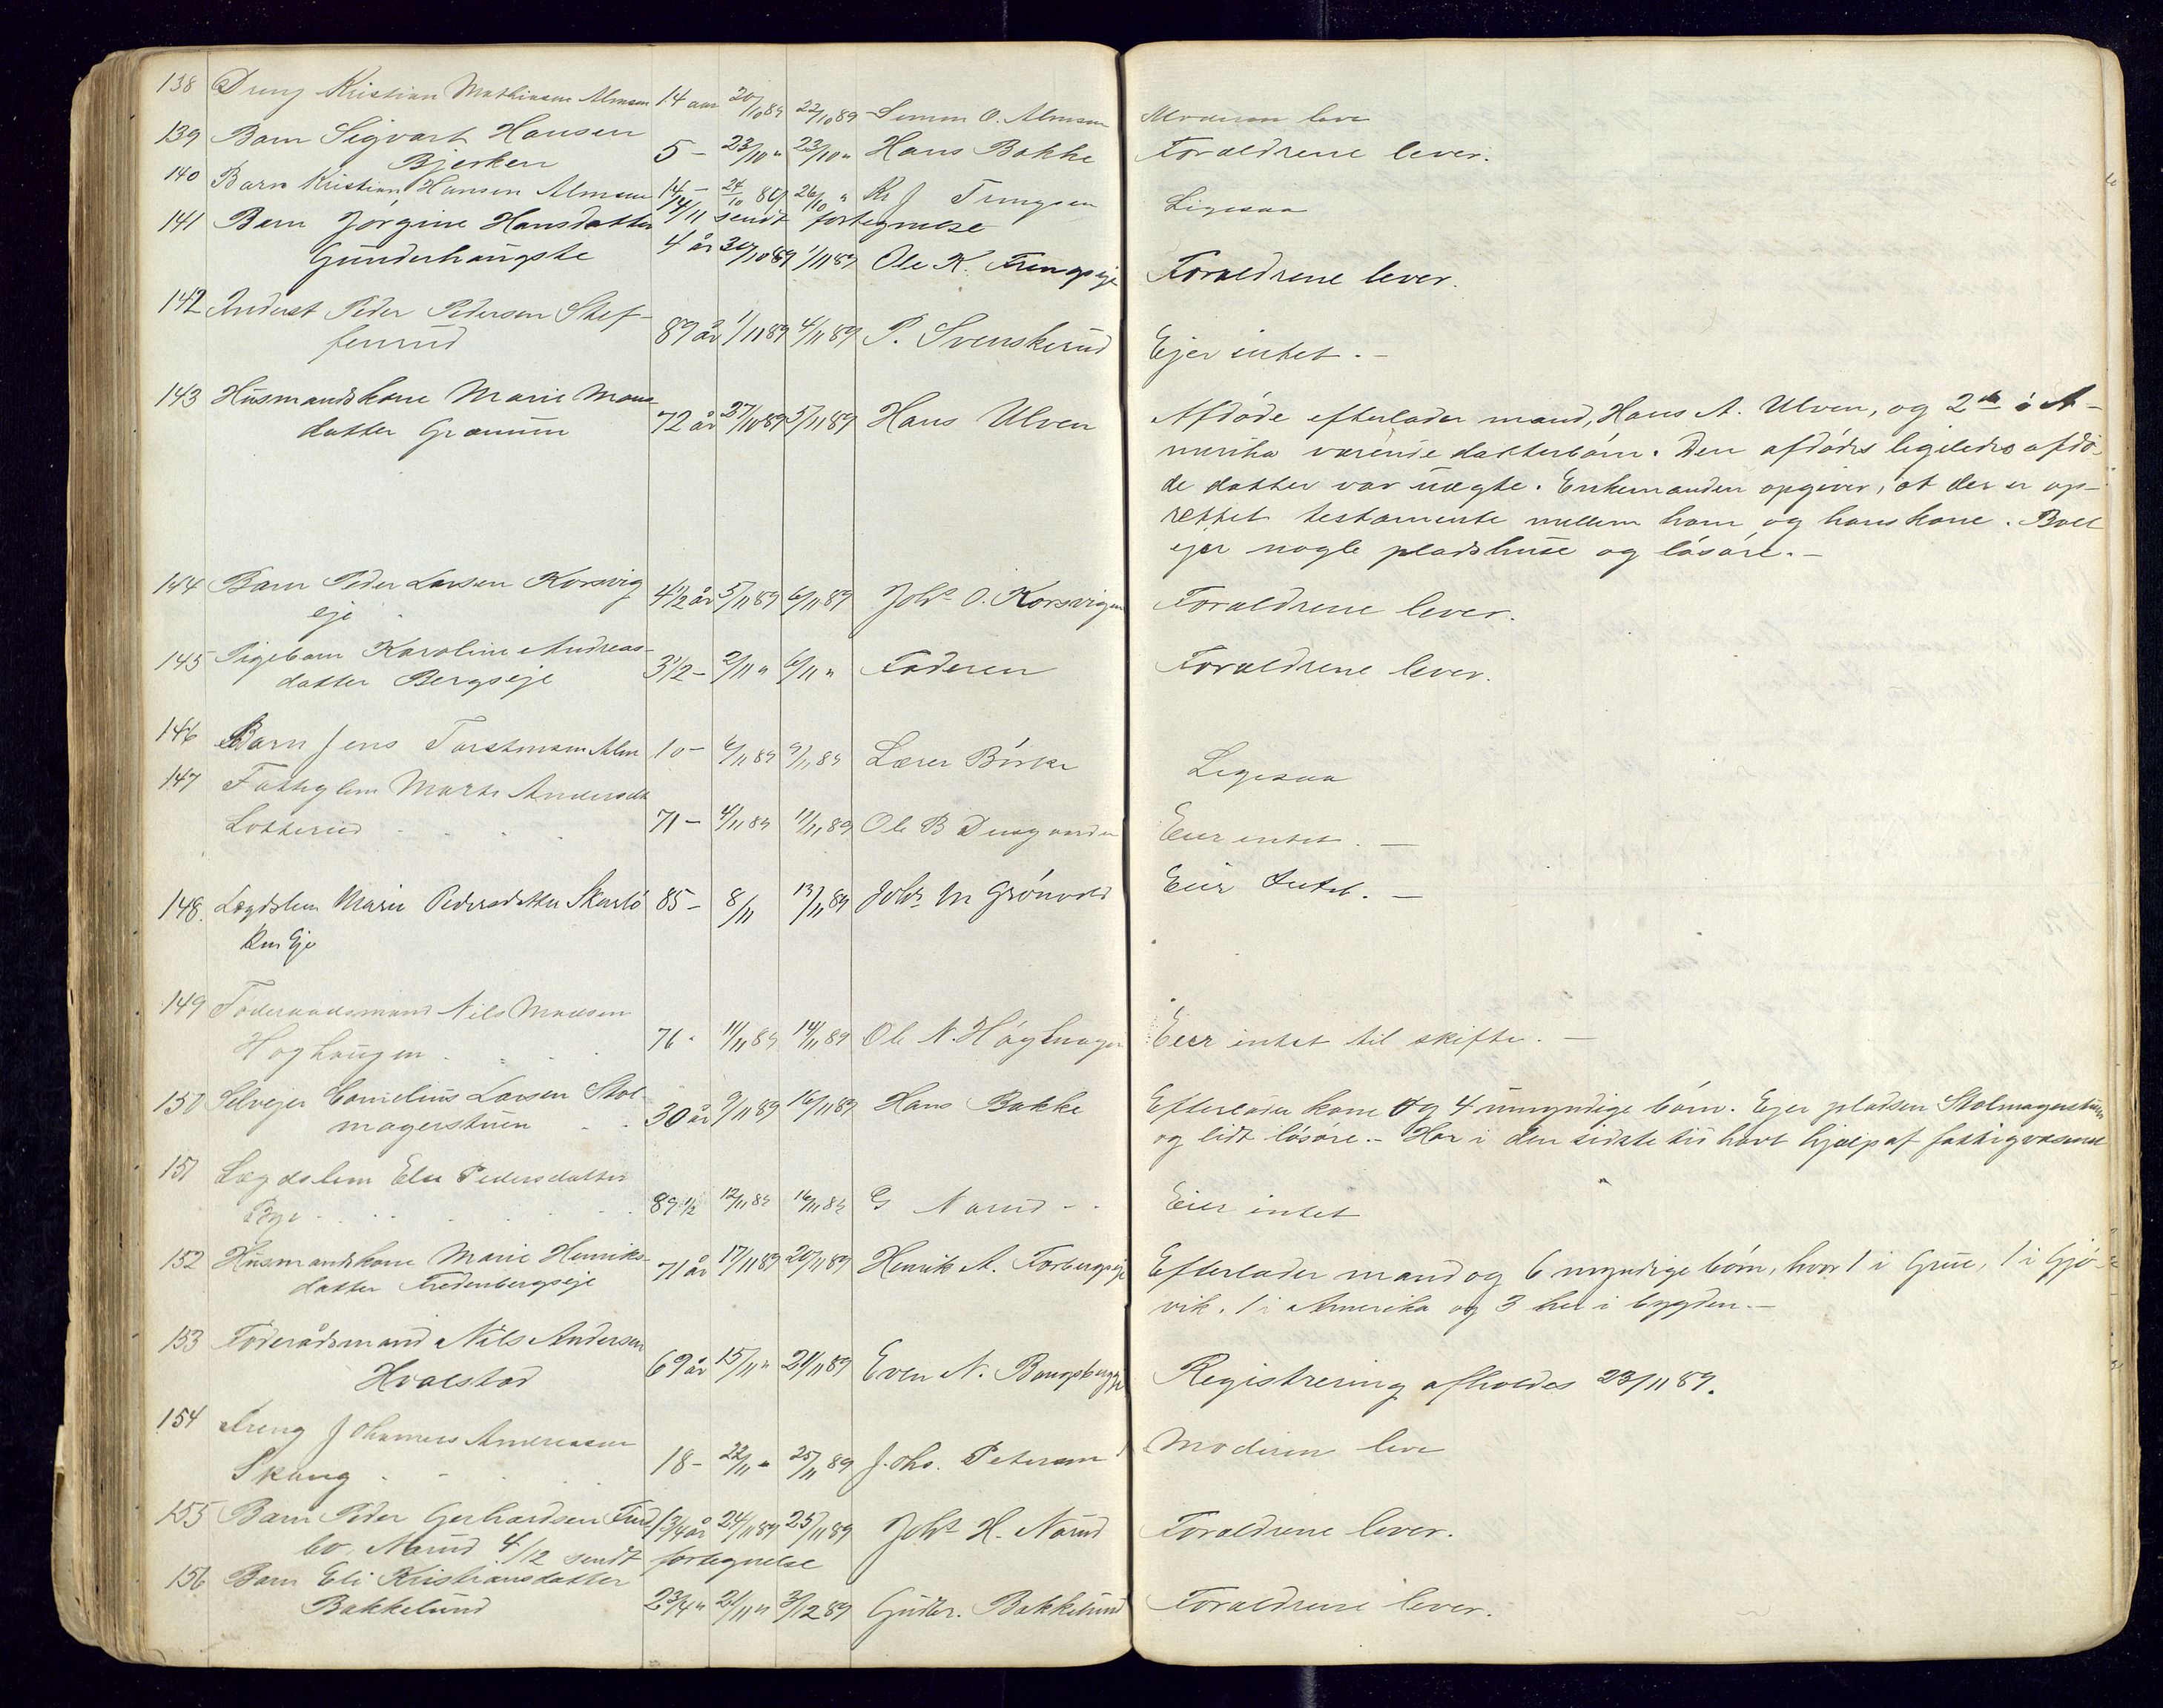 138 Dreng Kristian Mathiasen Almsen 14 aar 20/10 89 22/10 89 Simen O. Almsen Moderen leve
139 Barn Sigvart Hansen
Bjerken 5 – 23/10 " 23/10 " Hans Bakke Forældrene lever.
140 Barn Kristian Hansen Almsen 14 – 24/10 89 26/10 " Kr J Ligesaa
4/11 sendt fortegnelse
141 Barn Jörgine Hansdatter
Gunderhaugste 4 år 30/10 89 1/11 89 Ole K. Forældrene lever.
142 Inderst Peder Pedersen Stef-
fenrud 89 år 1/11 89 4/11 89 P. Svenskerud Ejer intet. –
143 Husmandskone Marie Mons-
datter Grænum 72 år 27/10 89 5/11 89 Hans Ulven Afdöde efterlader mand, Hans A. Ulven, og 2de i A-
merika værende datterbörn. Den afdödes ligeledes afdö-
de datter var uægte. Enkemanden opgiver, at der er op-
rettet testamente mellem ham og hans kone. Boet
ejer nogle pladshuse og lösöre. –
144 Barn Peder Larsen Korsvig
eje 4 1/2 år 5/11 89 6/11 89 Johs O. Korsvigen Forældrene lever.
145 Pigebarn Karoline Andreas-
datter Bergseje 3 1/2 – 2/11 " 6/11 " Faderen Forældrene lever.
146 Barn Jens Torstensen Alm 10 – 6/11 89 9/11 89 Lærer Börke Ligesaa
147 Fattiglem Marte Andersdt
Lotterud 71 – 4/11 89 11/11 89 Ole B Eier intet. –
148. Lægdslem Marie Pedersdatter Skarlö
Eje 85 – 8/11 13/11 89 Johs M Grönvold Eier Intet. –
149 Föderaadsmand Nils Madsen
Höghaugen 76 " 11/11 89 14/11 89 Ole N. Höghaugen Eier intet til skifte. –
150 Selvejer Cornelius Larsen Stol-
magerstuen 30 år 9/11 89 16/11 89 Hans Bakke Efterlader kone og 4 umyndige börn. Ejer pladsen Stolmagerstuen
og lidt lösöre. – Har i den sidste tid havt hjælp af fattigvæsenet
151 Lægdslem Else Pedersdatter
Bye 89 1/2 12/11 89 16/11 89 G Narud – Eier intet
152 Husmandskone Marie Henriks-
datter Fredenbergseje 71 år 17/11 89 20/11 89 Henrik A. Forbergseje Efterlader mand og 6 myndige börn, hvor 1 i Grue, 1 i Gjö-
vik, 1 i Amerika og 3 her i bygden. –
153 Föderådsmand Nils Andersen
Hvalstad 69 år 15/11 " 21/11 89 Even N. Bangsbergeje Registrering afholdes 23/11 89.
154 Dreng Johannes Andreassen
Skaug 18 – 22/11 " 25/11 89 Johs. Petersen Moderen leve
155 Barn Peder Gerhardsen Fred
bo. Narud 1 3/4 år 24/11 89 25/11 89 Johs H. Narud Forældrene lever.
4/12 sendt fortegnelse
156 Barn Eli Kristiansdatter
Bakkelund 2 3/4 " 21/11 " 3/12 89 Gudbr. Bakkelund Forældrene lever.